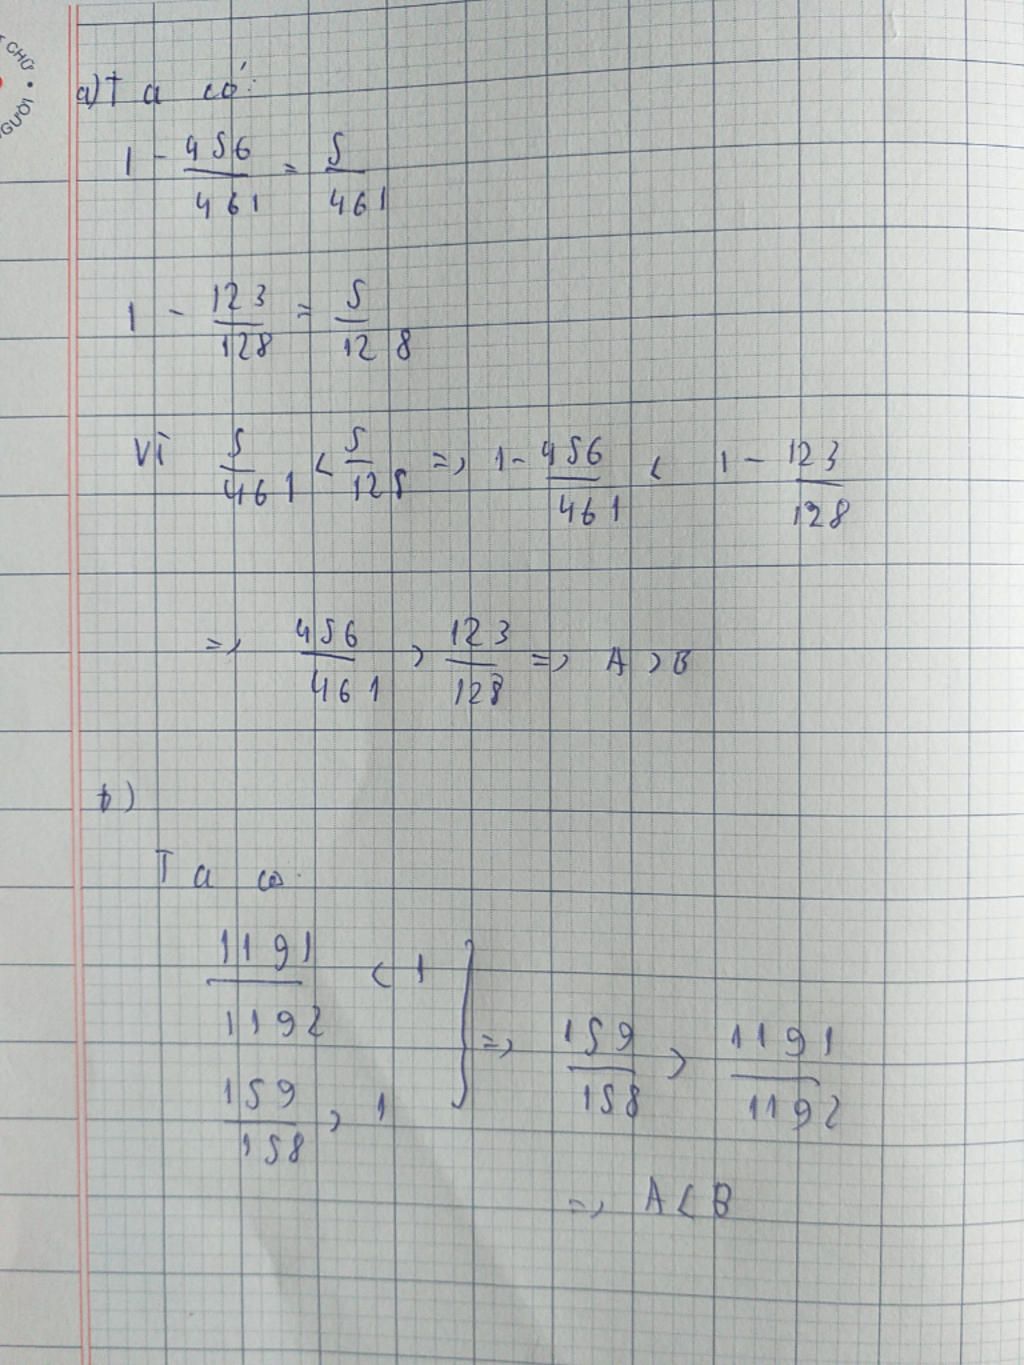 CHỮ
NGƯỜI
a) Ta có:
1 - 456/461 = 5/461
1 - 123/128 = 5/128
Vì 5/461 < 5/128 => 1 - 456/461 < 1 - 123/128
=> 456/461 > 123/128 => A > B
b)
Ta có:
1191/1192 < 1
159/158 > 1
} => 159/158 > 1191/1192
=> A < B